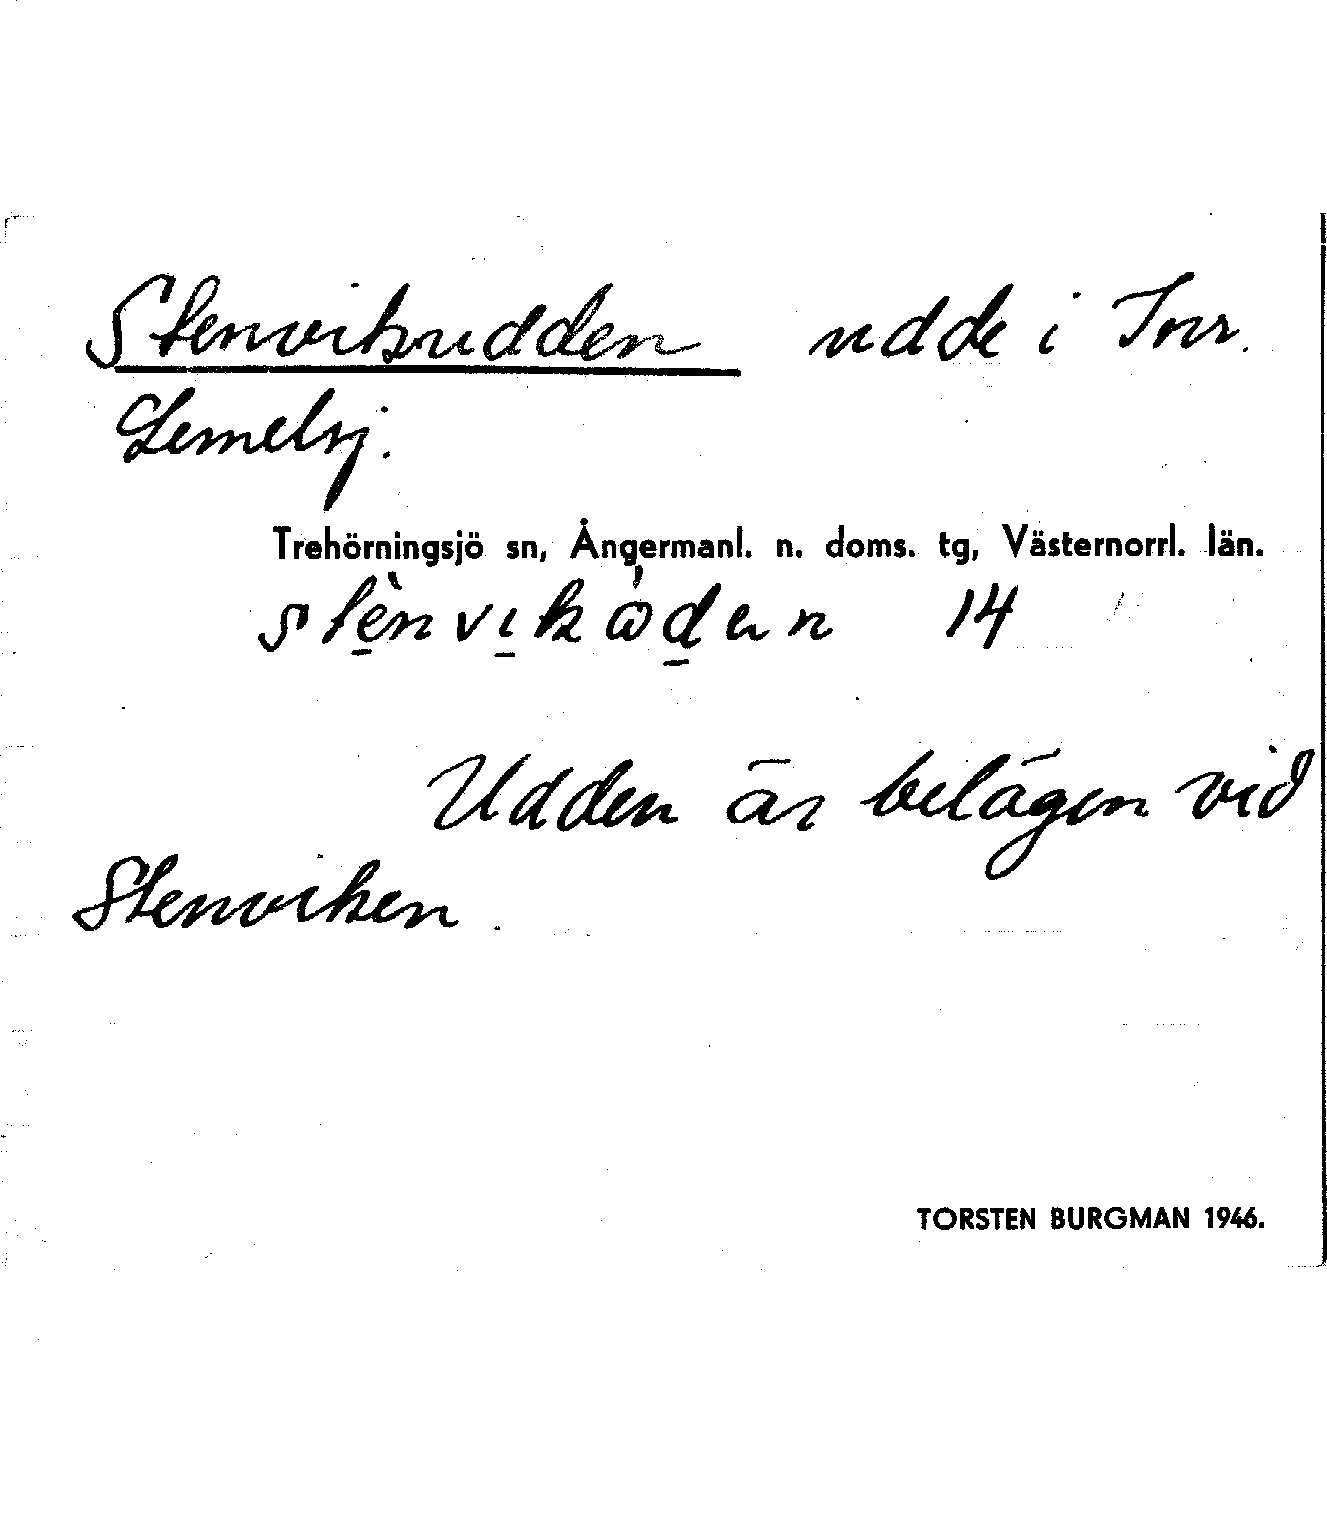 Stenvikudden udde i Torr.
Lemelsj.
Trehörningsjö sn, Ångermanl. n. doms. tg, Västernorrl. län.
14
Udden är belägen vid
Stenviken.
TORSTEN BURGMAN 1946.